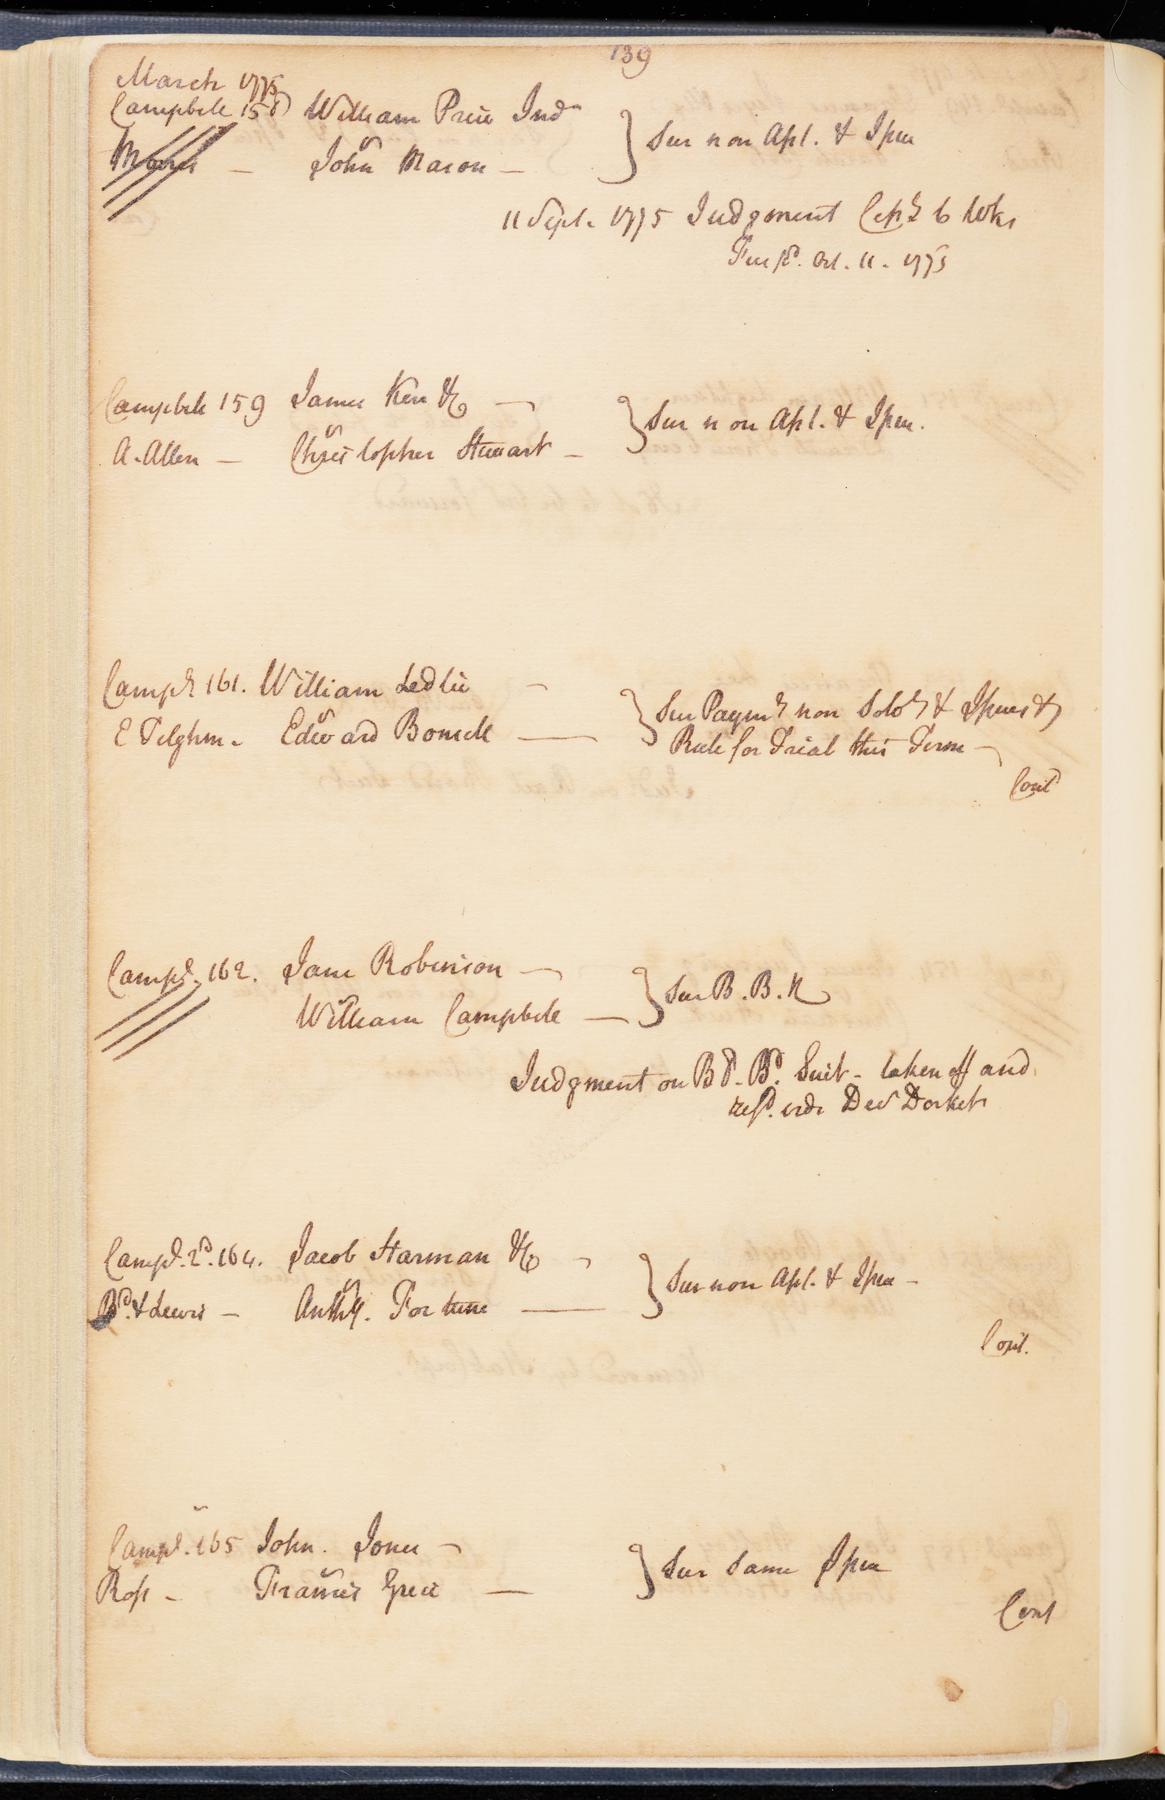 139
March 1775
Campbele 158 William Price Ind
Morris — John Mason —
} Sur non Apl. & Issue
11 Sept. 1775 Judgment 6 Wks
Oct. 11. 1775
Campbele 159 James Ker &c —
A. Allen — Christopher Stewart —
} Sur non Apl. & Issue.
Camp. 161. William Ledlie —
E Tilghm. Edward Bonsell —
} Sur Paym.t non Solv.t & Issues &
Rule for Trial this Term —
Cont
Camp. 162. Jane Robinson —
William Campbele —
} Sur B. B. R
Judgment on Suit - taken off and
vide Dec.r Docket
Camp. 2.d. 164. Jacob Harman &c
B.d. & Lewis — Anth.y. Fortune —
} Sur non Apl. & Issue —
Cont.
Camp. 165 John. Jones —
Ross — Francis Grece —
} Sur same Issue
Cont